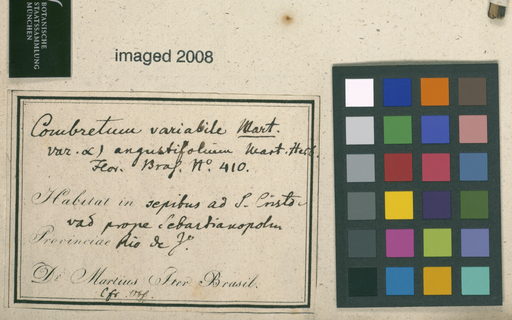 BOTANISCHE
STAATSSAMMLUNG
MÜNCHEN
imaged 2008
Combretum variabile Mart.
var. α) angustifolium Mart. Herb.
Flor. Bras. No. 410.
Habitat in sepibus ad S. Cristo-
vaõ prope Sebastianopolin
Provinciae Rio de Jo.
Dr Martius Iter Brasil.